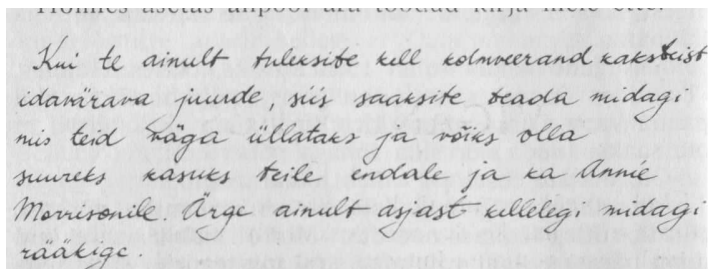 Holmes asetas allpool ära toodud kirja meie ette.
Kui te ainult tuleksite kell kolmveerand kaksteist
idavärava juurde, siis saaksite teada midagi
mis teid väga üllataks ja võiks olla
suureks kasuks teile endale ja ka Annie
Morrisonile. Ärge ainult asjast kellelegi midagi
rääkige.